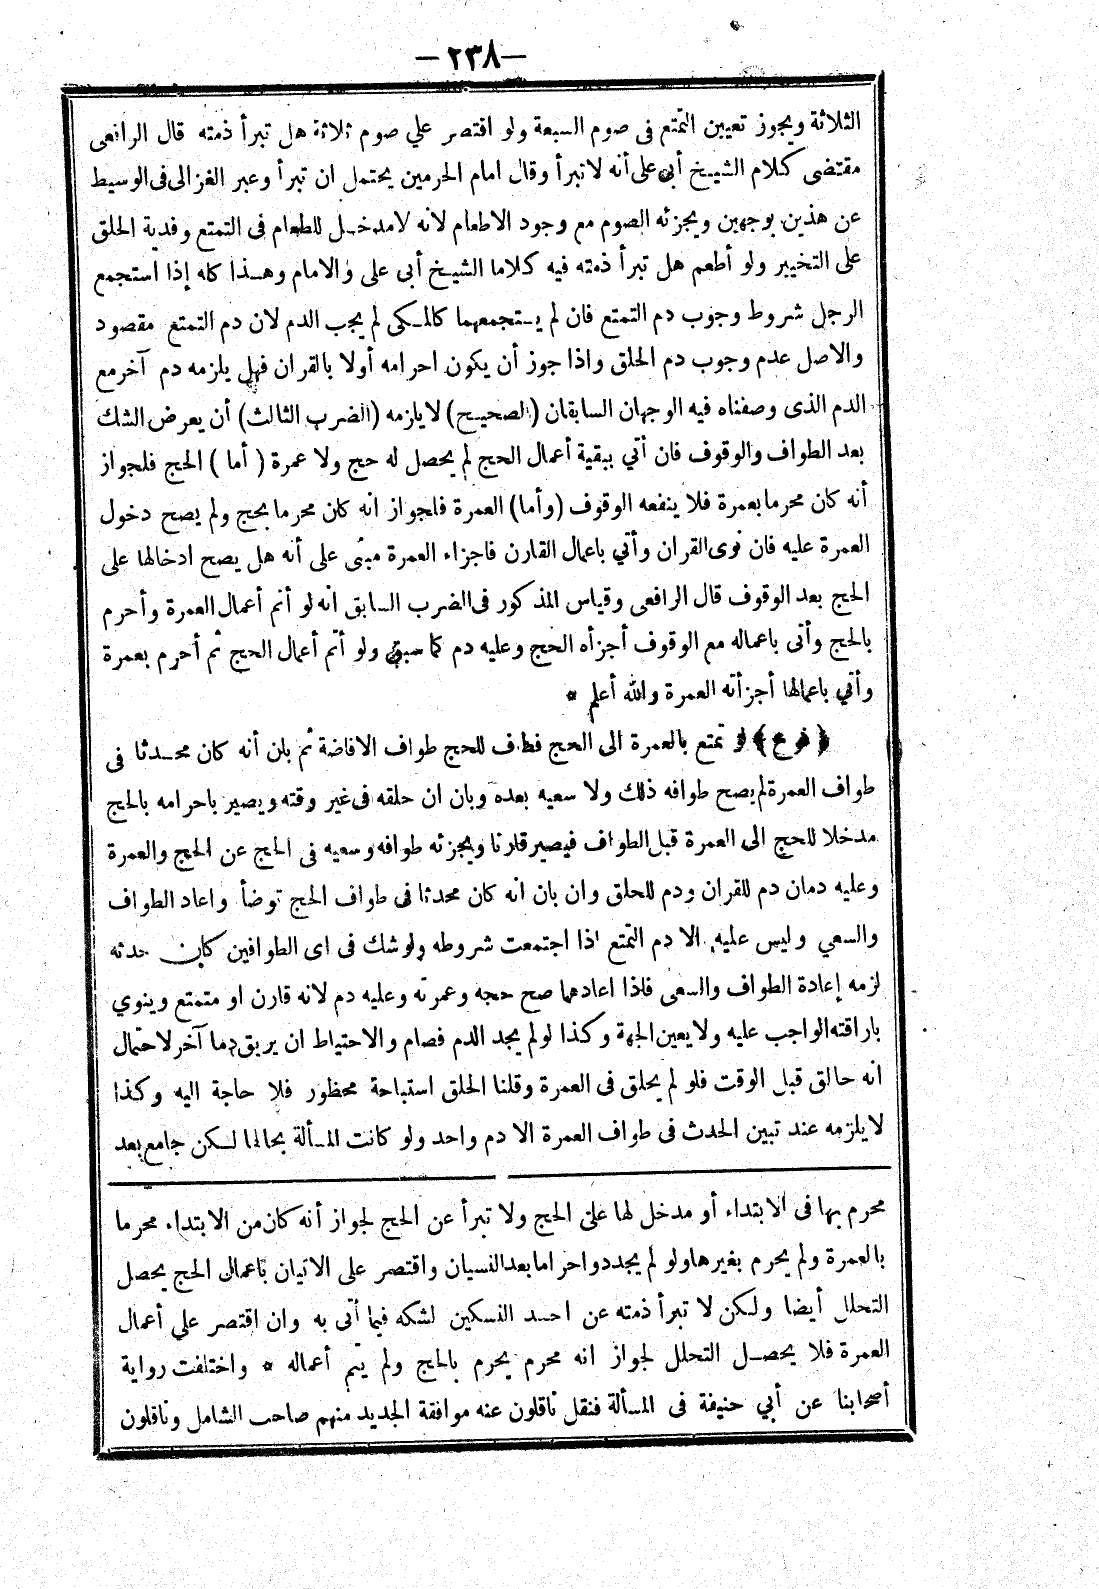 —٢٣٨—
الثلاثة ويجوز تعيين التمتع فى صوم السبعة ولو اقتصر علي صوم ثلاثة هل تبرأ ذمته قال الرافعى
مقتضى كلام الشيخ أبى على أنه لا تبرأ وقال امام الحرمين يحتمل ان تبرأ وعبر الغزالى فى الوسيط
عن هذين بوجهين ويجزئه الصوم مع وجود الاطعام لانه لا مدخل للطعام فى التمتع وفدية الحلق
على التخيير ولو أطعم هل تبرأ ذمته فيه كلاما الشيخ أبى على والامام وهذا كله إذا استجمع
الرجل شروط وجوب دم التمتع فان لم يستجمعهما كالمكى لم يجب الدم لان دم التمتع مقصود
والاصل عدم وجوب دم الحلق واذا جوز أن يكون احرامه أولا بالقران فهل يلزمه دم آخر مع
الدم الذى وصفناه فيه الوجهان السابقان (الصحيح) لا يلزمه (الضرب الثالث) أن يعرض الشك
بعد الطواف والوقوف فان أتي ببقية أعمال الحج لم يحصل له حج ولا عمرة (أما) الحج فلجواز
أنه كان محرما بعمرة فلا ينفعه الوقوف (وأما) العمرة فلجواز انه كان محرما بحج ولم يصح دخول
العمرة عليه فان نوى القران وأتي باعمال القارن فاجزاء العمرة مبنى على أنه هل يصح ادخالها على
الحج بعد الوقوف قال الرافعى وقياس المذكور فى الضرب السابق انه لو أتم أعمال العمرة وأحرم
بالحج وأتى باعماله مع الوقوف أجزأه الحج وعليه دم كما سبق ولو أتم أعمال الحج ثم أحرم بعمرة
وأتي باعمالها أجزأته العمرة والله أعلم *
﴿فرع﴾ لو تمتع بالعمرة الى الحج فطاف للحج طواف الافاضة ثم بان أنه كان محدثا فى
طواف العمرة لم يصح طوافه ذلك ولا سعيه بعده وبان ان حلقه فى غير وقته ويصير باحرامه بالحج
مدخلا للحج الى العمرة قبل الطواف فيصير قارنا ويجزئه طوافه وسعيه فى الحج عن الحج والعمرة
وعليه دمان دم للقران ودم للحلق وان بان انه كان محدثا فى طواف الحج توضأ واعاد الطواف
والسعي وليس عليه الا دم التمتع اذا اجتمعت شروطه ولو شك فى اى الطوافين كان حدثه
لزمه إعادة الطواف والسعى فاذا اعادهما صح حجه وعمرته وعليه دم لانه قارن او متمتع وينوي
باراقته الواجب عليه ولا يعين الجهة وكذا لو لم يجد الدم فصام والاحتياط ان يريق دما آخر لاحتمال
انه حالق قبل الوقت فلو لم يحلق فى العمرة وقلنا الحلق استباحة محظور فلا حاجة اليه وكذا
لا يلزمه عند تبين الحدث فى طواف العمرة الا دم واحد ولو كانت المسألة بحالها لكن جامع بعد
محرم بها فى الابتداء أو مدخل لها على الحج ولا تبرأ عن الحج لجواز أنه كان من الابتداء محرما
بالعمرة ولم يحرم بغيرها ولو لم يجدد واحراما بعد النسيان واقتصر على الاتيان باعمال الحج يحصل
التحلل أيضا ولكن لا تبرأ ذمته عن احد النسكين لشكه فيما أتى به وان اقتصر علي أعمال
العمرة فلا يحصل التحلل لجواز انه محرم يحرم بالحج ولم يتم أعماله * واختلفت رواية
أصحابنا عن أبي حنيفة فى المسألة فنقل ناقلون عنه موافقة الجديد منهم صاحب الشامل وناقلون